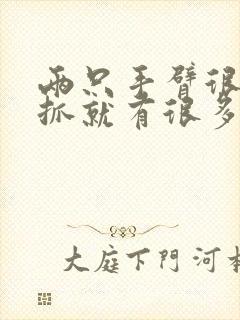 两只手臂很
抓就有很多
大庭下門河本